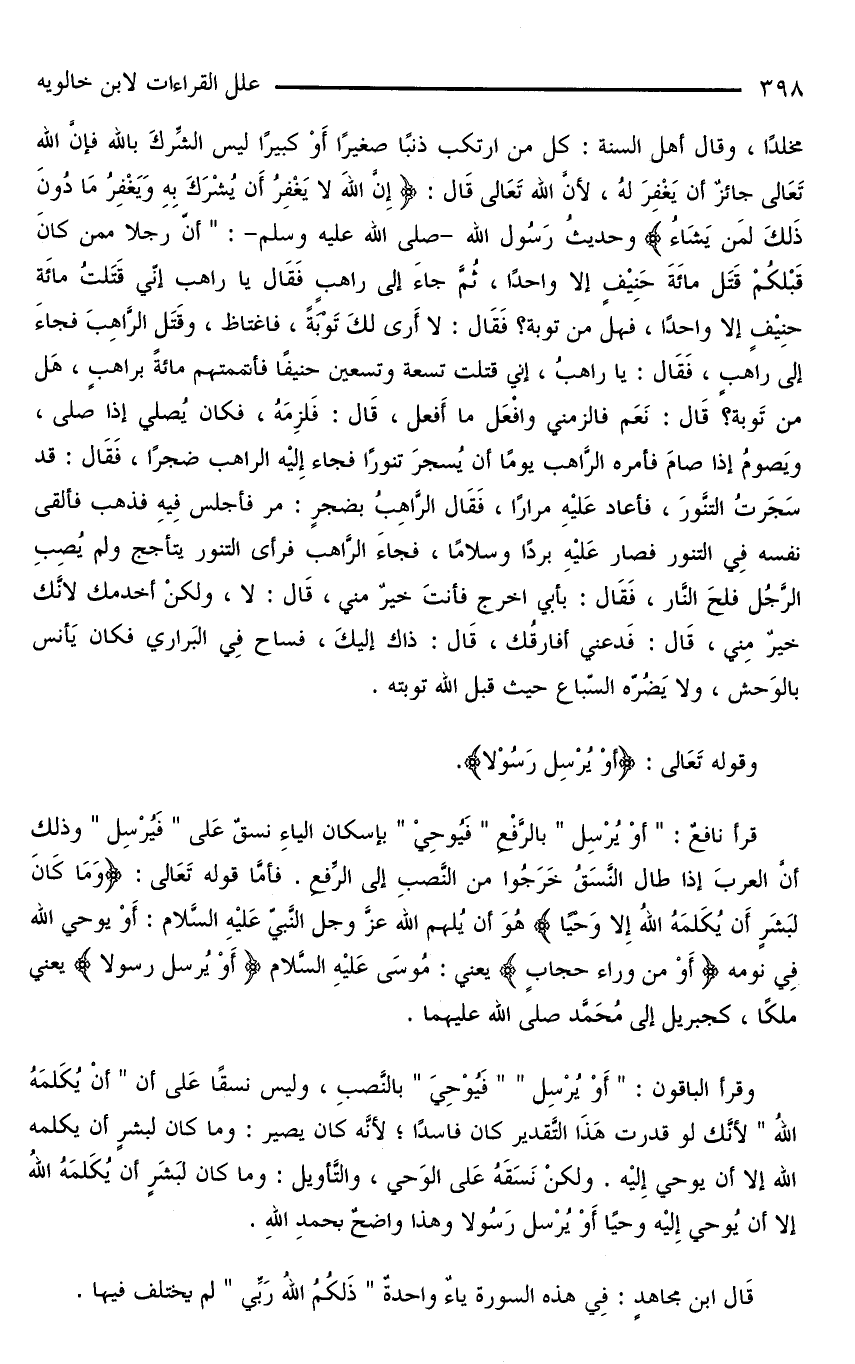 ٣٩٨ علل القراءات لابن خالويه
مخلدًا ، وقال أهل السنة : كل من ارتكب ذنبًا صغيرًا أَوْ كبيرًا ليس الشِّركَ بالله فإنَّ الله
تَعَالى جائزٌ أن يَغْفِرَ لهُ ، لأنَّ الله تَعَالى قَال : ﴿ إنَّ اللهَ لا يَغْفِرُ أَن يُشْرَكَ بِهِ وَيَغْفِرُ مَا دُونَ
ذَلكَ لمَن يَشَاءُ ﴾ وحديثُ رَسُول الله –صلى الله عليه وسلم– : " أنّ رجلا ممن كانَ
قَبْلَكُمْ قَتَل مائَةَ حَنِيْفٍ إلا واحدًا ، ثُمَّ جاءَ إلى راهبٍ فَقَال يا راهب إنّي قَتَلتُ مائَة
حنيْفٍ إلا واحدًا ، فهل من توبة؟ فَقَال : لا أَرى لكَ تَوْبَةً ، فاغتاظ ، وقَتَل الرَّاهِبَ فجاءَ
إلى راهبٍ ، فَقَال : يا راهبُ ، إني قتلت تسعة وتسعين حنيفًا فأتممتهم مائةً براهبٍ ، هَل
من تَوبة؟ قَال : نَعَم فالزمني وافْعَل ما أَفعل ، قَال : فَلزِمَهُ ، فكان يُصلي إذا صلى ،
ويَصومُ إذا صامَ فأمره الرَّاهب يومًا أن يُسجرَ تنورًا فجاء إِليْه الراهب ضجرًا ، فَقَال : قد
سَجَرتُ التنَّورَ ، فأعاد عَليْهِ مرارًا ، فَقَال الرَّاهِبُ بضجرٍ : مر فأجلس فِيهِ فذهب فألقى
نفسه فِي التنور فصار عَليْهِ بردًا وسلامًا ، فجاءَ الرَّاهب فرأى التنور يتأجج ولم يُصِبِ
الرَّجُل فلحَ النَّار ، فَقَال : بأبي اخرج فأنتَ خيرٌ مني ، قَال : لا ، ولكنْ أخدمك لأنَّك
خيرٌ مِني ، قَال : فَدعني أفارقُك ، قَال : ذاك إليكَ ، فساح فِي البَراري فكان يَأنس
بالوَحش ، ولا يَضُرّه السّباع حيث قبل الله توبته .
وقوله تَعَالى : ﴿أَوْ يُرْسِل رَسُوْلا﴾.
قرأ نافعٌ : " أَوْ يُرْسِل " بالرَّفْعِ " فَيُوحِيْ " بإسكان الياءِ نسقٌ عَلى " فَيُرْسِل " وذلك
أنَّ العربَ إذا طال النَّسَقُ خَرَجُوا من النَّصبِ إلى الرِّفعِ . فأمَّا قوله تَعَالى : ﴿وَمَا كَانَ
لبَشَرٍ أَن يُكَلمَهُ اللهُ إلا وَحْيًا ﴾ هُوَ أن يُلهم الله عزَّ وجل النَّبيّ عَليْهِ السَّلام : أَوْ يوحي الله
فِي نومه ﴿ أَوْ من وراء حجابٍ ﴾ يعني : مُوسَى عَليْهِ السَّلام ﴿ أَوْ يُرسل رسولا ﴾ يعني
ملكًا ، كجبريل إلى مُحَمَّد صلى الله عليهما .
وقرأ الباقون : " أَوْ يُرْسِل " " فَيُوْحِيَ " بالنَّصبِ ، وليس نسقًا عَلى أن " أنْ يُكَلمَهُ
اللهُ " لأنَّك لو قدرت هَذَا التَّقدير كان فاسدًا ؛ لأنَّه كان يصير : وما كان لبشرٍ أن يكلمه
الله إلا أن يوحي إليْه . ولكنْ نَسَقَهُ عَلى الوَحي ، والتَّأويل : وما كان لبَشَرٍ أن يُكَلمَهُ اللهُ
إلا أن يُوحي إليْه وحيًا أَوْ يُرْسل رَسُولا وهذا واضحٌ بحمدِ اللهِ .
قَال ابن مجاهدٍ : فِي هذه السورة ياءٌ واحدةٌ " ذَلكُمُ اللهُ رَبِّي " لم يختلف فيها .